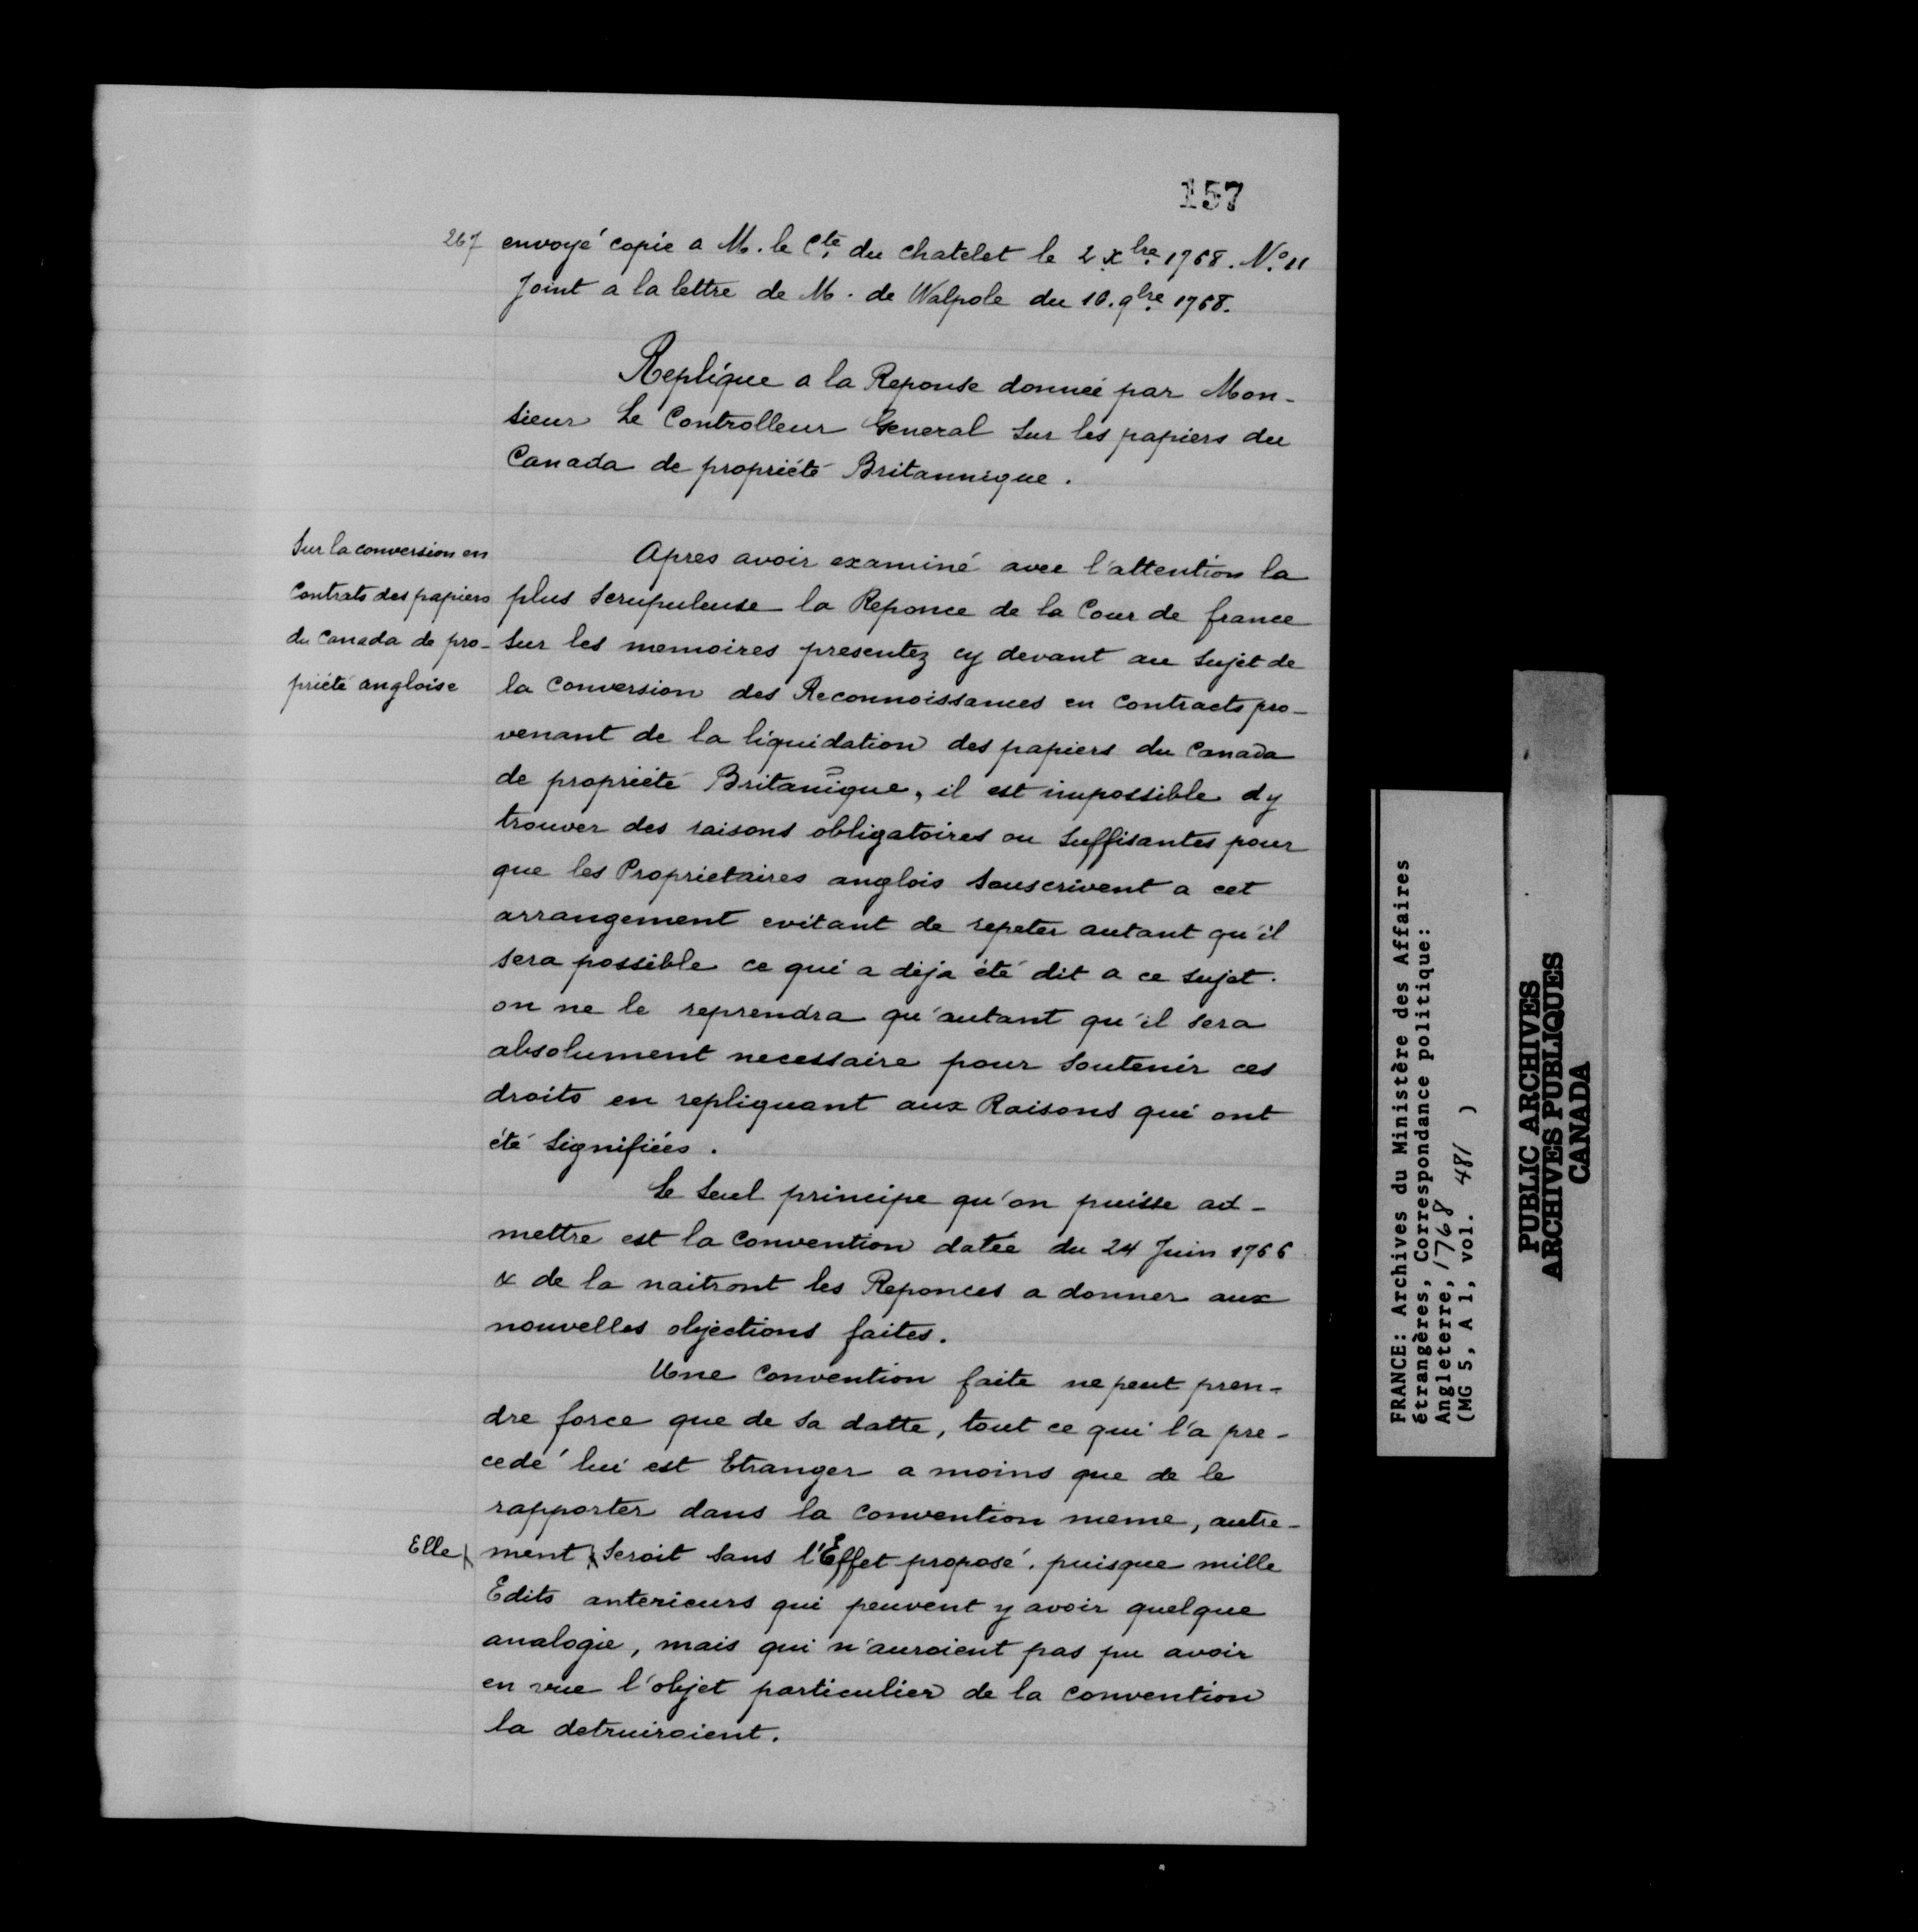 157
267 envoyé copie a M. le Cte. du chatelet le 2 xbre. 1768. N.° 11
Joint a la lettre de M. de Walpole du 10. 9bre. 1768.
Replique a la Reponse donnée par Mon-
sieur Le Controlleur General sur les papiers du
Canada de propriété Britannique.
Sur la conversion en
Contrats des papiers
du Canada de pro-
priété angloise
Apres avoir examiné avec l'attention la
plus Scrupuleuse la Reponce de la Cour de france
sur les memoires presentez cy devant au Sujet de
la Conversion des Reconnoissances en Contracts pro-
venant de la liquidation des papiers du Canada
de propriété Britanique, il est impossible dy
trouver des raisons obligatoires ou Suffisantes pour
que les Proprietaires anglois Souscrivent a cet
arrangement evitant de repeter autant qu'il
sera possible ce qui a déja été dit a ce sujet.
on ne le reprendra qu'autant qu'il sera
absolument necessaire pour Soutenir ces
droits en repliquant aux Raisons qui ont
été Signifiées.
Le Seul principe qu'on puisse ad-
mettre est la Convention datée du 24 Juin 1766
& de la naitront les Reponces a donner aux
nouvelles objections faites.
Une Convention faite ne peut pren-
dre force que de Sa datte, tout ce qui l'a pre-
cedé lui est Etranger a moins que de le
rapporter dans la Convention meme, autre-
Elle ment Seroit Sans l'Effet proposé. puisque mille
Edits anterieurs qui peuvent y avoir quelque
analogie, mais qui n'auroient pas pu avoir
en vue l'objet particulier de la Convention
la detruiroient.
FRANCE: Archives du Ministère des Affaires
étrangères, Correspondance politique:
Angleterre, 1768
(MG 5, A 1, vol. 481 )
PUBLIC ARCHIVES
ARCHIVES PUBLIQUES
CANADA